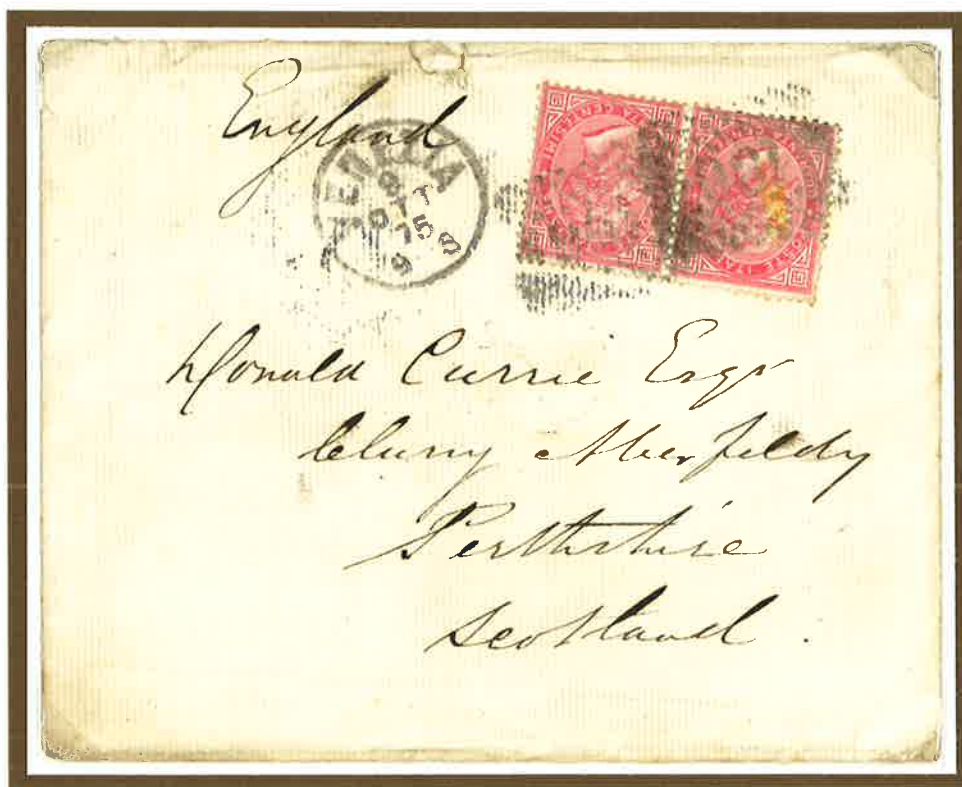 England
VENEZIA
Donald Currie Esqr
Cluny Aberfeldy
Perthshire
Scotland